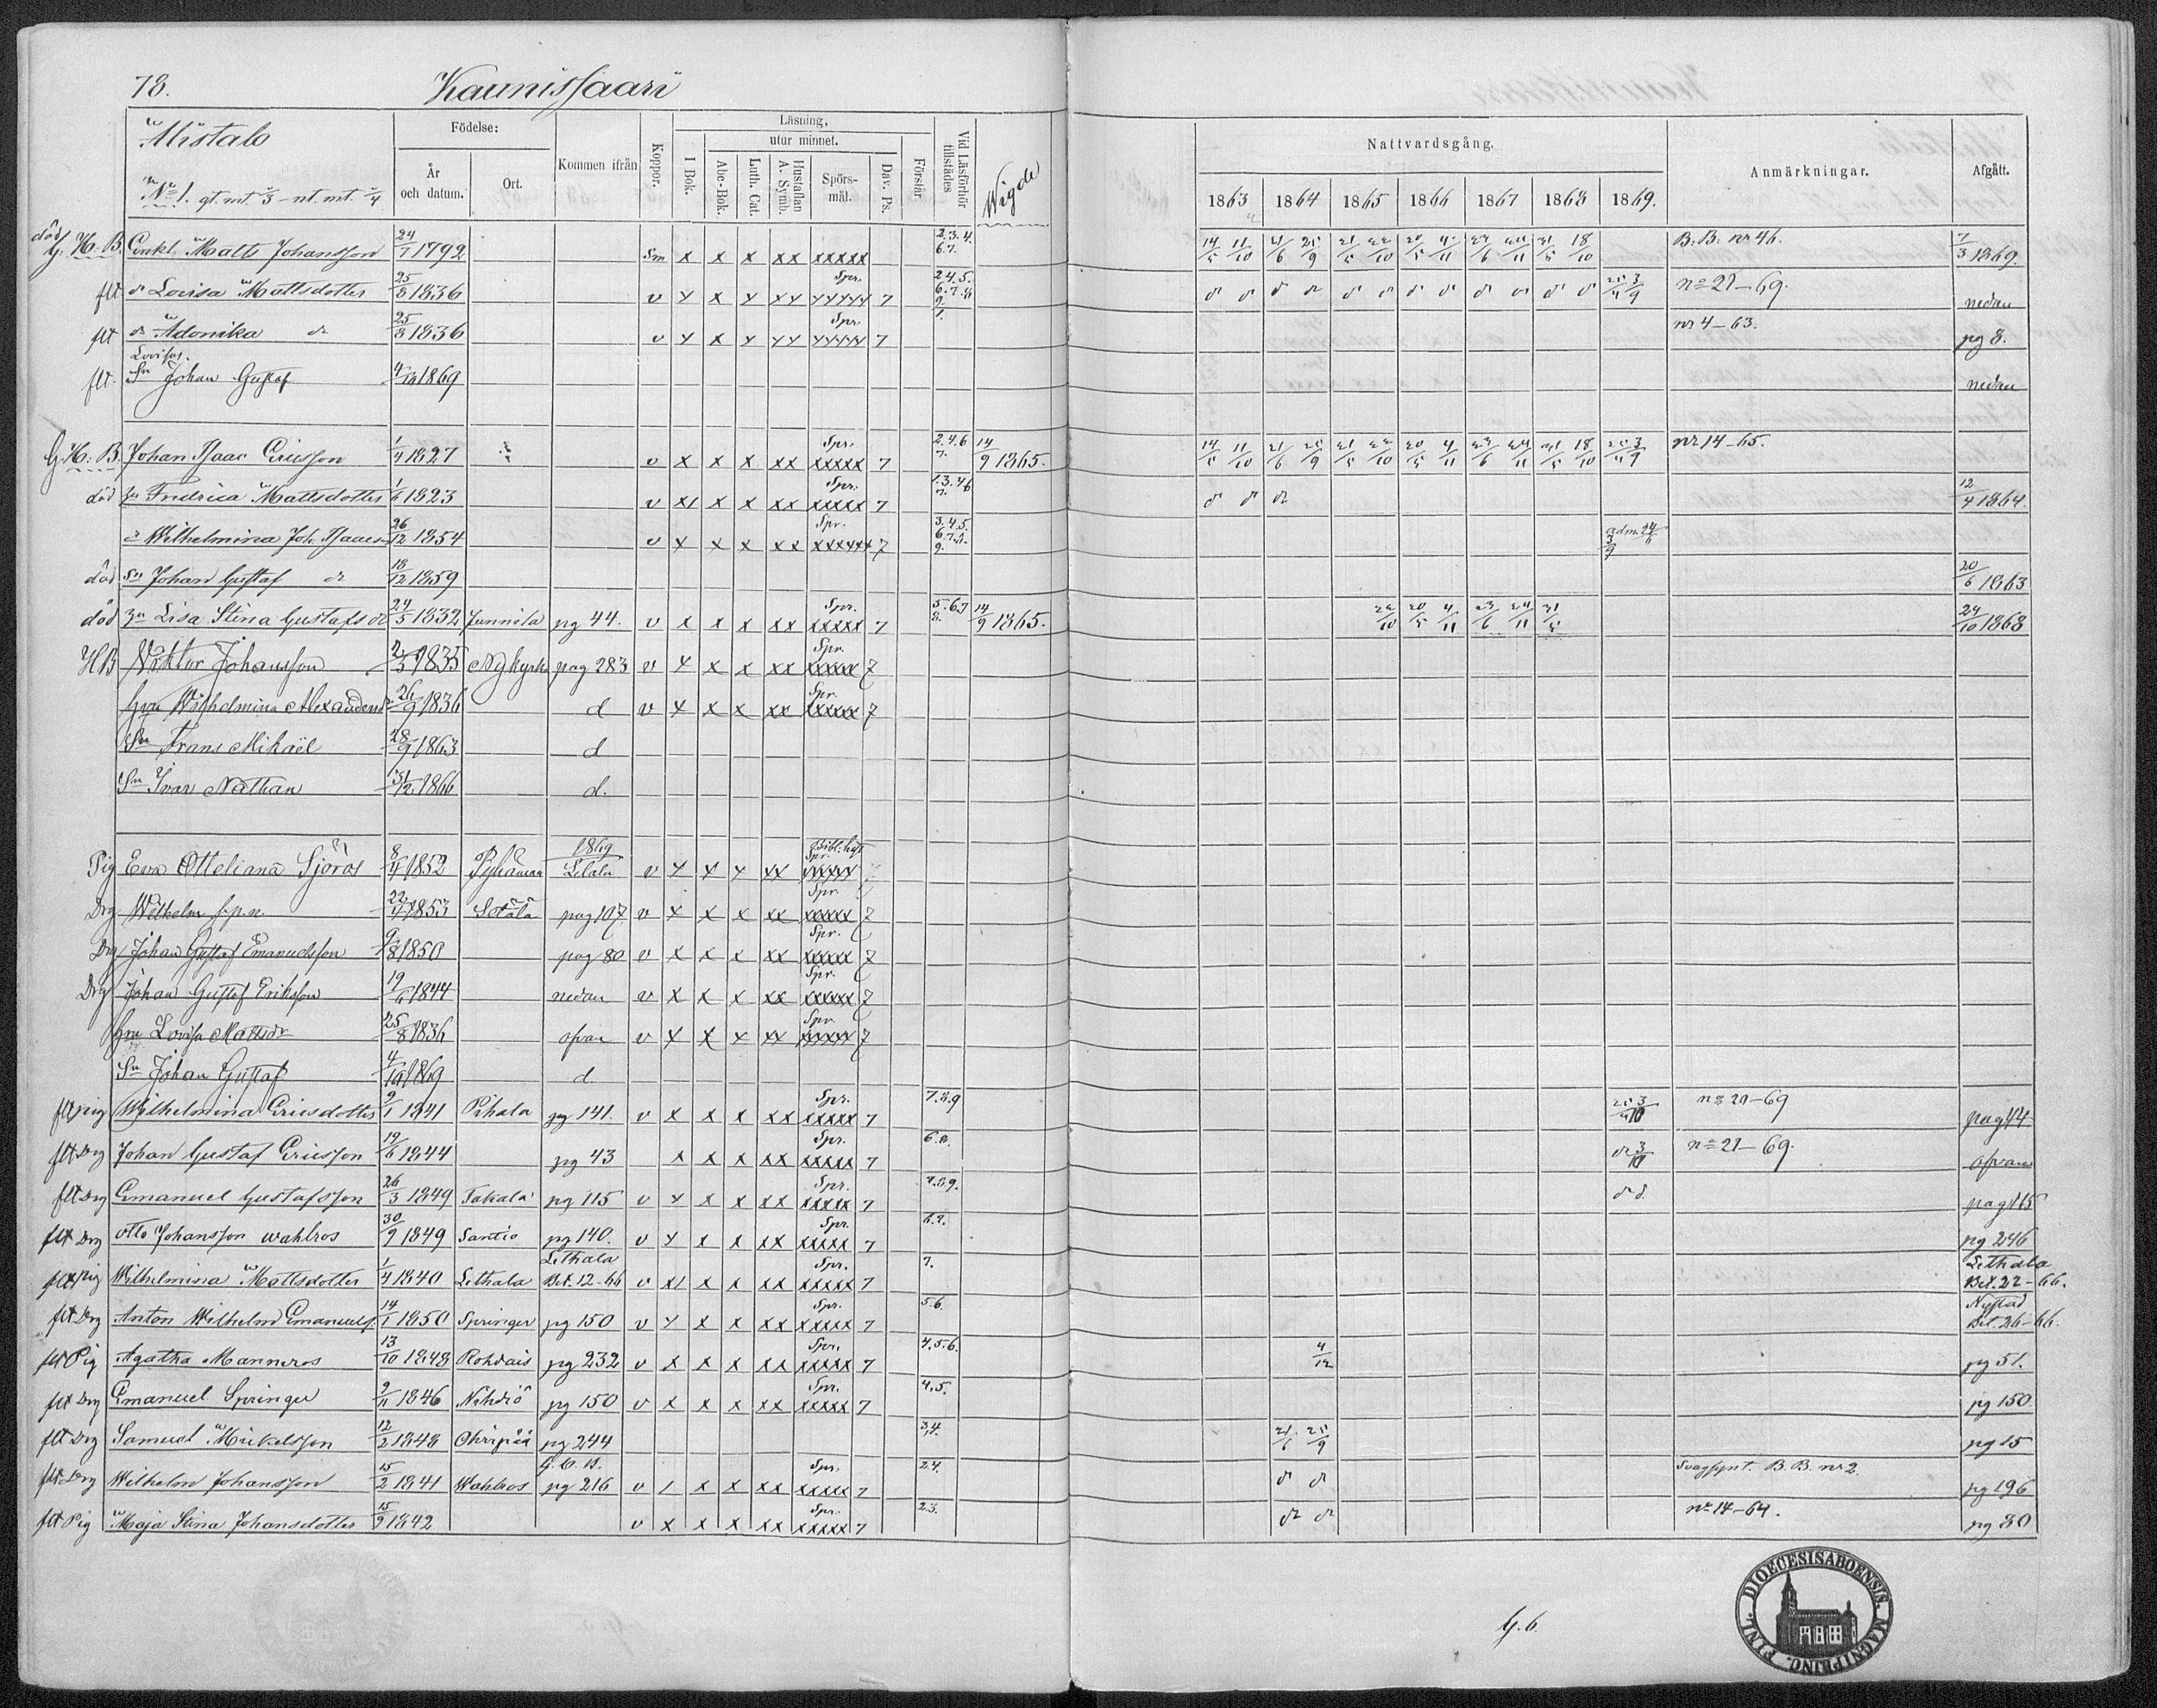 78. Kaunissaari
Alistalo
No 1. gt. mt. 3/4 - nt. mt. 3/4
Födelse:
År och datum.
Ort.
Kommen ifrån
Koppor.
Läsning,
I Bok.
utur minnet.
Abc-Bok.
Luth. Cat.
Hustaflan A. Symb.
Spörsmål.
Dav. Ps.
Förstår
Vid Läsförhör tillstädes
Wigde
Nattvardsgång.
1863 1864 1865 1866 1867 1868 1869.
Anmärkningar.
Afgått.
död G. H. B. Enkl. Matts Johansson 24/7 1792 Sm x x x xx xxxxx 2.3.4. 6.7. 14/5 11/10 21/6 25/9 21/5 22/10 20/5 4/11 23/6 24/11 31/5 18/10 B. B. nr 46. 7/3 1869.
flt dr Lovisa Mattsdotter 25/8 1836 v x x x xx Spr. xxxxx 7 2.4.5. 6.7.8 9. 25/4 3/9 no 21-69. nedan
flt dr Adonika dr 25/8 1836 v x x x xx Spr. xxxxx 7 1. nr 4-63. pg 8.
flt. Lovisas. Sn Johan Gustaf 4/10 1869 nedan
G. H. B. Johan Isaac Ericsson 1/4 1827 v x x x xx Spr. xxxxx 7 2.4.6 7. 14/9 1865. 14/5 11/10 21/6 25/9 21/5 22/10 20/5 4/11 23/6 24/11 31/5 18/10 25/4 3/9 nr 14-65.
död hu Fredrica Mattsdotter 1/6 1823 v x x x xx Spr. xxxxx 7 1.3.4.6 7. 12/4 1864.
dr Wilhelmina Joh. Isaacs 26/12 1854 v x x x xx Spr. xxxxxx 7 3.4.5. 6.7.8. 9. adm. 24/6 3/9
död sn Johan Gustaf dr 18/12 1859 20/6 1863
död hu Lisa Stina Gustafs dr 24/5 1832 Junnila pg 44. v x x x xx Spr. xxxxx 7 5.6.7 8. 14/9 1865. 22/10 20/5 4/11 23/6 24/11 31/5 24/10 1868
HB Viktor Johansson 2/3 1835 Nykyrka pag 283 v x x x xx Spr. xxxxx 7
hu Wilhelmina Alexandersdr 26/9 1836 d v x x x xx Spr. xxxxx 7
Sn Frans Mikaël 28/9 1863 d
Sn Ivar Nathan 31/12 1866 d.
Pig Eva Otteliana Sjöros 8/4 1852 1869 Lelala v x x x xx Spr. xxxxx
Drg Wilhelm s.p.n. 22/4 1853 Sotala pag 107 v x x x xx Spr. xxxxx 7
Drg Johan Gustaf Emanuelsson 9/8 1850 pag 80 v x x x xx Spr. xxxxx 7
Drg Johan Gustaf Eriksson 19/6 1844 nedan v x x x xx Spr. xxxxx 7
hu Lovisa Mattsdr 25/8 1836 ofvan v x x x xx Spr. xxxxx 7
Sn Johan Gustaf 4/10 1869 d
flt pig Wilhelmina Ericsdotter 9/1 1841 Pihala pg 141. v x x x xx Spr. xxxxx 7 7.8.9 25/4 3/10 no 21-69 pag 14
flt Drg Johan Gustaf Ericsson 19/6 1844 pg 43 x x x xx Spr. xxxxx 7 6.8. dr 3/10 no 21-69. ofvan
flt Drg Emanuel Gustafsson 26/3 1849 Takala pg 115 v x x x xx Spr. xxxxx 7 7.8.9. dr d. pag 115
flt Drg Otto Johansson Wahlros 30/9 1849 Santio pg 140. v x x x xx Spr. xxxxx 7 6.7. pg 246
flt pig Wilhelmina Mattsdotter 1/4 1840 Lethala Lethala Bet. 12-66 v x x x xx Spr. xxxxx 7 7. Lethala Bet. 22-66.
flt Drg Anton Wilhelm Emanuels. 14/1 1850 Springer pg 150 v x x x xx Spr. xxxxx 7 5.6. Nystad Bet. 26-66.
flt Pig Agatha Manneros 13/10 1848 Rohdais pg 232 v x x x xx Spr. xxxxx 7 4.5.6. 4/12 pg 51.
flt Drg Emanuel Springer 9/11 1846 Nihdiö pg 150 v x x x xx Spr. xxxxx 7 4.5. pg 150.
flt Drg Samuel Mickelsson 12/2 1848 Ohripää pg 244 3.4. 21/6 25/9 pg 15
flt Drg Wilhelm Johansson 15/2 1841 Wahlros G. C. B. pg 216 v / x x xx Spr. xxxxx 7 2.4. dr dr Svagsynt. B. B. nr 2. pg 196
flt Pig Maja Stina Johansdotter 15/9 1842 v x x x xx Spr. xxxxx 7 2.3. dr dr nr 14-64. pg 80
G. 6.
DIOECESIS ABOENSIS. MAGNI PRINC. FINL.